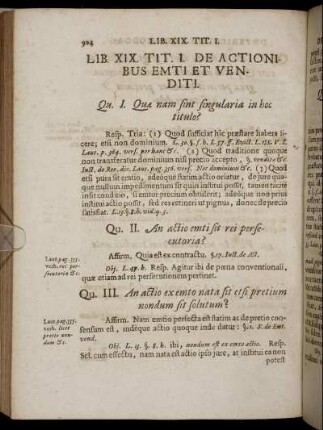 904 LIB. XIX. TIT. I.
LIB. XIX. TIT. I. DE ACTIONI
BUS EMTI ET VEN-
DITI.
Qu. I. Quæ nam sint singularia in hoc
titulo?
Resp. Tria: (1) Quod sufficiat hic præstare habere li-
cere; etsi non dominium.
Laut. p. 369. vers. per hanc &c. (2) Quod traditione quoque
non transferatur dominium nisi pretio accepto, §. venditæ &c.
Inst. de Rer. div. Laut. pag. 356. vers. Nec dominium &c. (3) Quod
etsi pura sit emtio, adeoque statim actio oriatur, de jure quo-
que nullum impedimentum sit quin institui possit, tamen tacite
insit conditio, si emtor precium obtulerit; adeoque non prius
institui actio possit, sed res retineri ut pignus, donec de precio
satisfiat.
Qu. II. An actio emti sit rei perse-
cutoria?
Affirm. Quia est ex contractu. §. 17. Inst. de Act.
Obj. Resp. Agitur ibi de pœna conventionali,
quæ etiam ad rei persecutionem pertinet.
Qu. III. An actio ex emto nata sit etsi pretium
nondum sit solutum?
Affirm. Nam emtio perfecta est statim ac de pretio con-
sensum est, indeque actio quoque inde datur:
vend.
Obj. ibi, nondum est ex emto actio. Resp.
Sel. cum effectu, nam nata est actio ipso jure, at institui ea non
potest